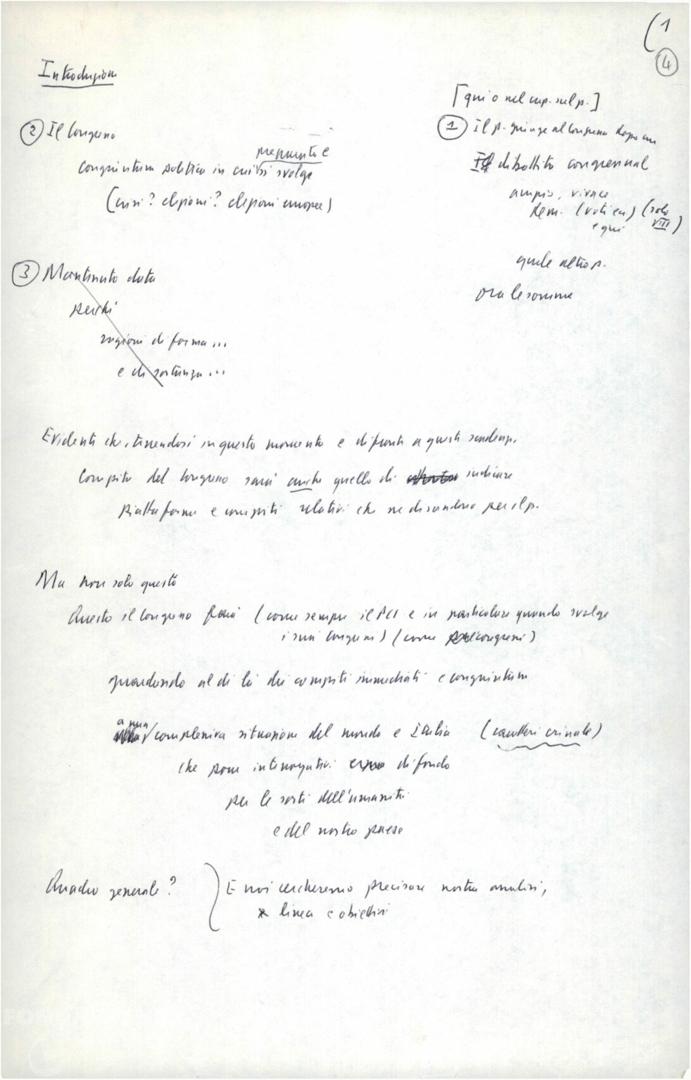 (1
4
Introduzione
[qui o nel cap. sul p.]
② Il Congresso
① Il p. giunge al Congresso dopo un
preparato e
congiuntura politica in cui si svolge
dibattito congressual
(crisi? elezioni? elezioni europee)
ampio, vivace
dem. (voti ecc) (solo
e qui VIII)
quale altro p.
③ Mantenuto data
Ora le somme
perché
ragioni di forma...
e di sostanza...
Evidente che, tenendosi in questo momento e di fronte a queste scadenze,
Compito del Congresso sarà anche quello di indicare
piattaforma e compiti relativi che ne discendono per il p.
Ma non solo questo
Questo il Congresso farà (come sempre il PCI e in particolare quando svolge
i suoi Congressi) (come congressi)
guardando al di là dei compiti immediati e congiuntura
a una complessiva situazione del mondo e Italia (caratteri cruciale)
che pone interrogativi di fondo
per le sorti dell'umanità
e del nostro paese
Quadro generale?
E noi cercheremo precisare nostra analisi,
linea e obiettivi